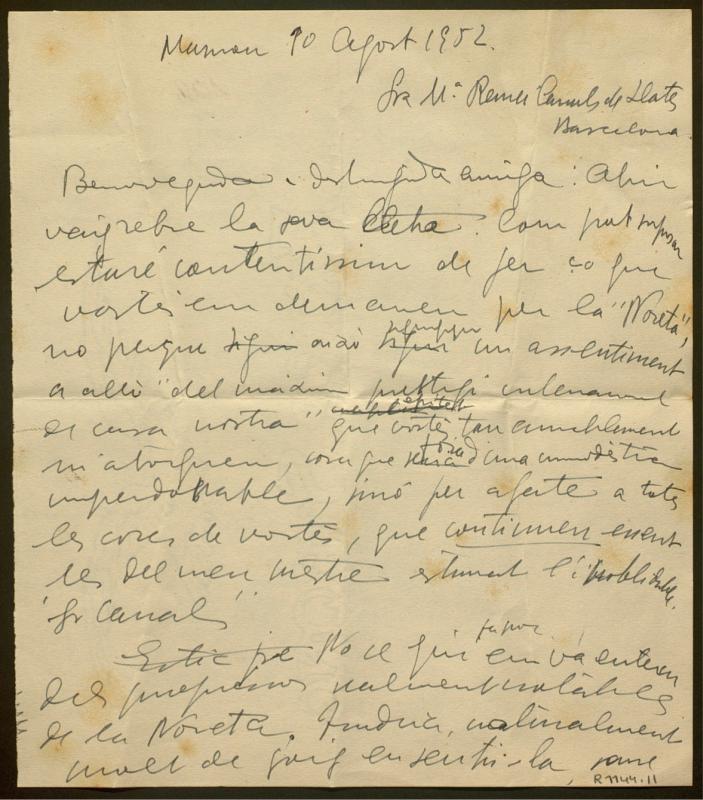 10 Agost 1952.
Sra Mª Remei Canals de Llates
Barcelona
Benvolguda i distingida amiga: Ahir
vaig rebre la seva lletra. Com pot suposar
estaré contentíssim de fer ço que
vostès em demanen per la "Noreta",
no perque sigui això signifiqui un assentiment
a allò "del màxim prestigi
de casa nostra" que vostès tan amablement
m'atorguen, cosa que fora d'una immodèstia
imperdonable, sinó per afecte a totes
les coses de vostès, que continuen essent
les del meu mestre estimat l'inoblidable
Sr Canals
Estic No se qui em va enterar
dels progressos realment notables
de la Noreta. Tindria, naturalment
molt de goig en sentir-la, sense
R 1144-11